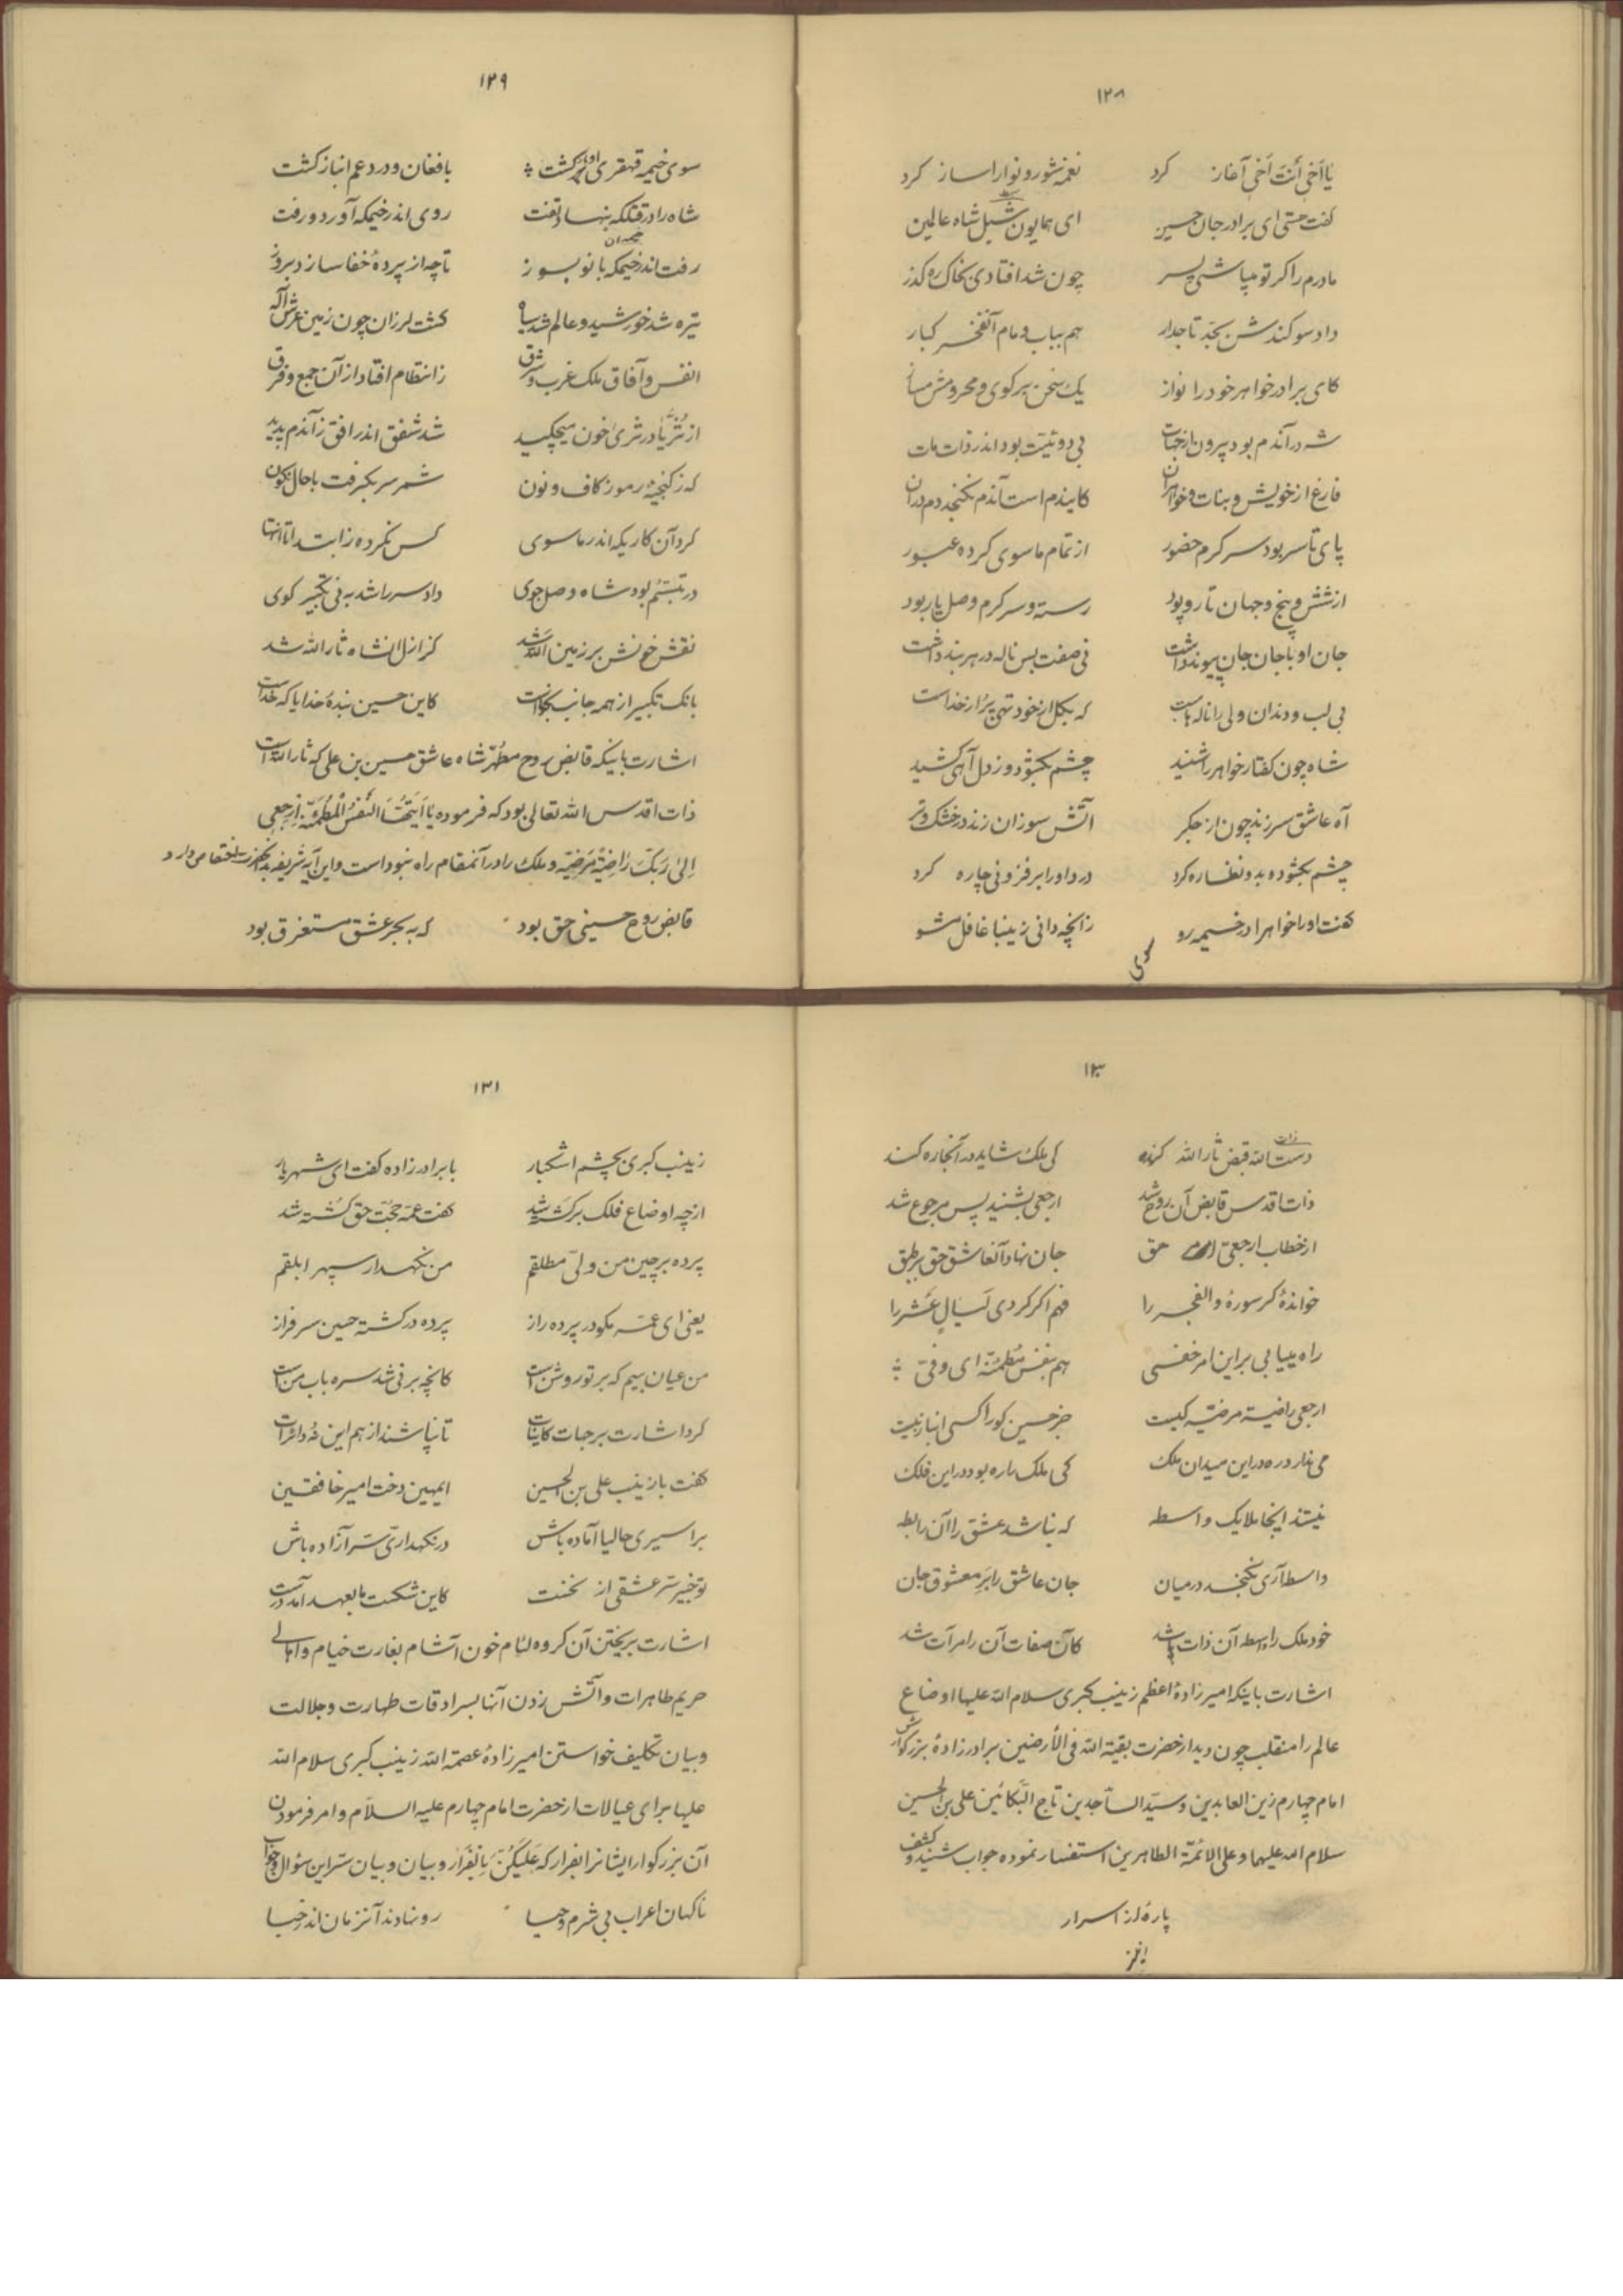 ۱۲۸
یا اَخی أنتَ اَخی آغاز کرد نغمه شور و نوا را ساز کرد
گفت حتی ای برادر جان حسین ای همایون شبل شاه عالمین
مادرم را گر تو میباشی پسر چون شد افتادی بخاک ره گذر
داد سوگندش بجد تاجدار هم بباب و مام آنفخر کبار
کای برادر خواهر خود را نواز یک سخن برگوی و محرومش مساز
شه در آندم بود بیرون از جهات بی دوئیت بود اندر ذات مات
فارغ از خویش و بنات و خواهران کایندم است آندم نگنجد دم در آن
پای تا سر بود سرگرم حضور از تمام ماسوی کرده عبور
از شش و پنج و جهان تار و پود رسته و سرگرم وصل یار بود
جان او با جان جان پیوند داشت نی صفت بس ناله در هر بند داشت
بی لب و دندان ولی را ناله‌هاست که بکل از خود تهی پر از خداست
شاه چون گفتار خواهر را شنید چشم بگشود و ز دل آهی کشید
آه عاشق سر زند چون از جگر آتش سوزان زند در خشک و تر
چشم بگشوده بدو نظاره کرد درد او را بر فزونی چاره کرد
گفت او را خواهرا در خیمه رو زانچه دانی زینبا غافل مشو
سوی
۱۲۹
سوی خیمه قهقری او باز گشت با فغان و درد و غم انباز گشت
شاه را در قتلگه بنهاد و تفت روی اندر خیمگه آورد و رفت
رفت اندر خیمگه بانو بسوز تا چه از پردهٔ خفا سازد بروز
تیره شد خورشید و عالم شد سیاه گشت لرزان چون زمین عرش اله
انفس و آفاق ملک غرب و شرق ز انتظام افتاد از آن جمع و فرق
از ثُریّا در ثری خون میچکید شد شفق اندر افق زآندم پدید
که ز گنجینه رموز کاف و نون شمر سر بگرفت با حال نگون
کرد آن کاریکه اندر ماسوی کس نکرده ز ابتدا تا انتها
در تبسّم بود شاه وصل جوی داد سر را شد به نی تکبیر گوی
نقش خونش بر زمین الله شد کز ازل آنشاه ثارالله شد
بانگ تکبیر از همه جانب بخواست کاین حسین بندهٔ خدا یا که خداست
اشارت باینکه قابض روح مطهّر شاه عاشق حسین بن علی که ثارالله است
ذات اقدس الله تعالی بود که فرموده یا اَیَّتُهَا النَّفسُ الْمُطمَئنّه اِرجِعِی
اِلیٰ رَبِّکَ رٰاضِیَةً مَرضِیّه و ملک را در آنمقام راه نبود است و این آیه شریفه بآنحضرت اختصاص دارد
قابض روح حسینی حق بود که به بحر عشق مستغرق بود
۱۳۰
ذات
دست الله قبض ثارالله کند کی ملک شاید در آنجا ره کند
ذات اقدس قابض آن روح شد ارجعی بشنید پس مرجوع شد
از خطاب ارجعیّ حق جان نهاد آنعاشق حق بر طبق
خواندهٔ گر سورهٔ والفجر را فهم اگر کردی لَیالٍ عَشر را
راه مییابی بر این امر خفی هم بنفس مُطمئنّه ای وفی
ارجعی راضیة مرضیّه کیست جز حسین کو را کسی انباز نیست
می ندارد ره در این میدان ملک کی ملک را ره بود در این فلک
نیستند اینجا ملایک واسطه که نباشد عشق را آن رابطه
واسطه آری نگنجد در میان جان عاشق را بَرِ معشوق جان
خود ملک را واسطه آن ذات باشد کآن صفات آن را مرآت شد
اشارت باینکه امیرزادهٔ اعظم زینب کبری سلام الله علیها اوضاع
عالم را منقلب چون دید از حضرت بقیّة الله فی الأرضین برادرزادهٔ بزرگوارش
امام چهارم زین العابدین و سیّد السّاجدین تاج البکّائین علی بن الحسین
سلام الله علیهما و علی الائمّة الطاهرین استفسار نموده جواب شنید و کشف
پارهٔ از اسرار
۱۳۱
زینب کبری بچشم اشکبار با برادرزاده گفت ای شهریار
از چه اوضاع فلک برگشته شد گفت عمّه حجّت حق کُشته شد
پرده بر چین من ولیّ مطلقم من نگهدار سپهر ابلقم
یعنی ای عمّه مگو در پرده راز پرده در گشته حسین سرفراز
من عیان بینم که بر تو روشن است کانچه بر نی شد سره باب من است
کرد اشارت بر جهات کاینات تا نپاشند از هم این نُه دائرات
گفت با زینب علی بن الحسین ایمهین دخت امیر خافقین
بر اسیری حالیا آماده باش در نگهداریّ سرّ آزاده باش
تو خبیر سرّ عشقی از نخست کاین شکست ما بعهد آمد درست
اشارت بریختن آن گروه لئام خون آشام بغارت خیام و اهالی
حریم طاهرات و آتش زدن آنها بسرادقات طهارت و جلالت
و بیان تکلیف خواستن امیرزادهٔ عصمة الله زینب کبری سلام الله
علیها برای عیالات از حضرت امام چهارم علیه السلام و امر فرمودن
آن بزرگوار ایشانرا بفرار که عَلَیکُنَّ بِالْفَرار و بیان و بیان سرّ این سؤال و جواب
ناگهان اعراب بی شرم و حیا رو نهادند آنزمان اندر خبا